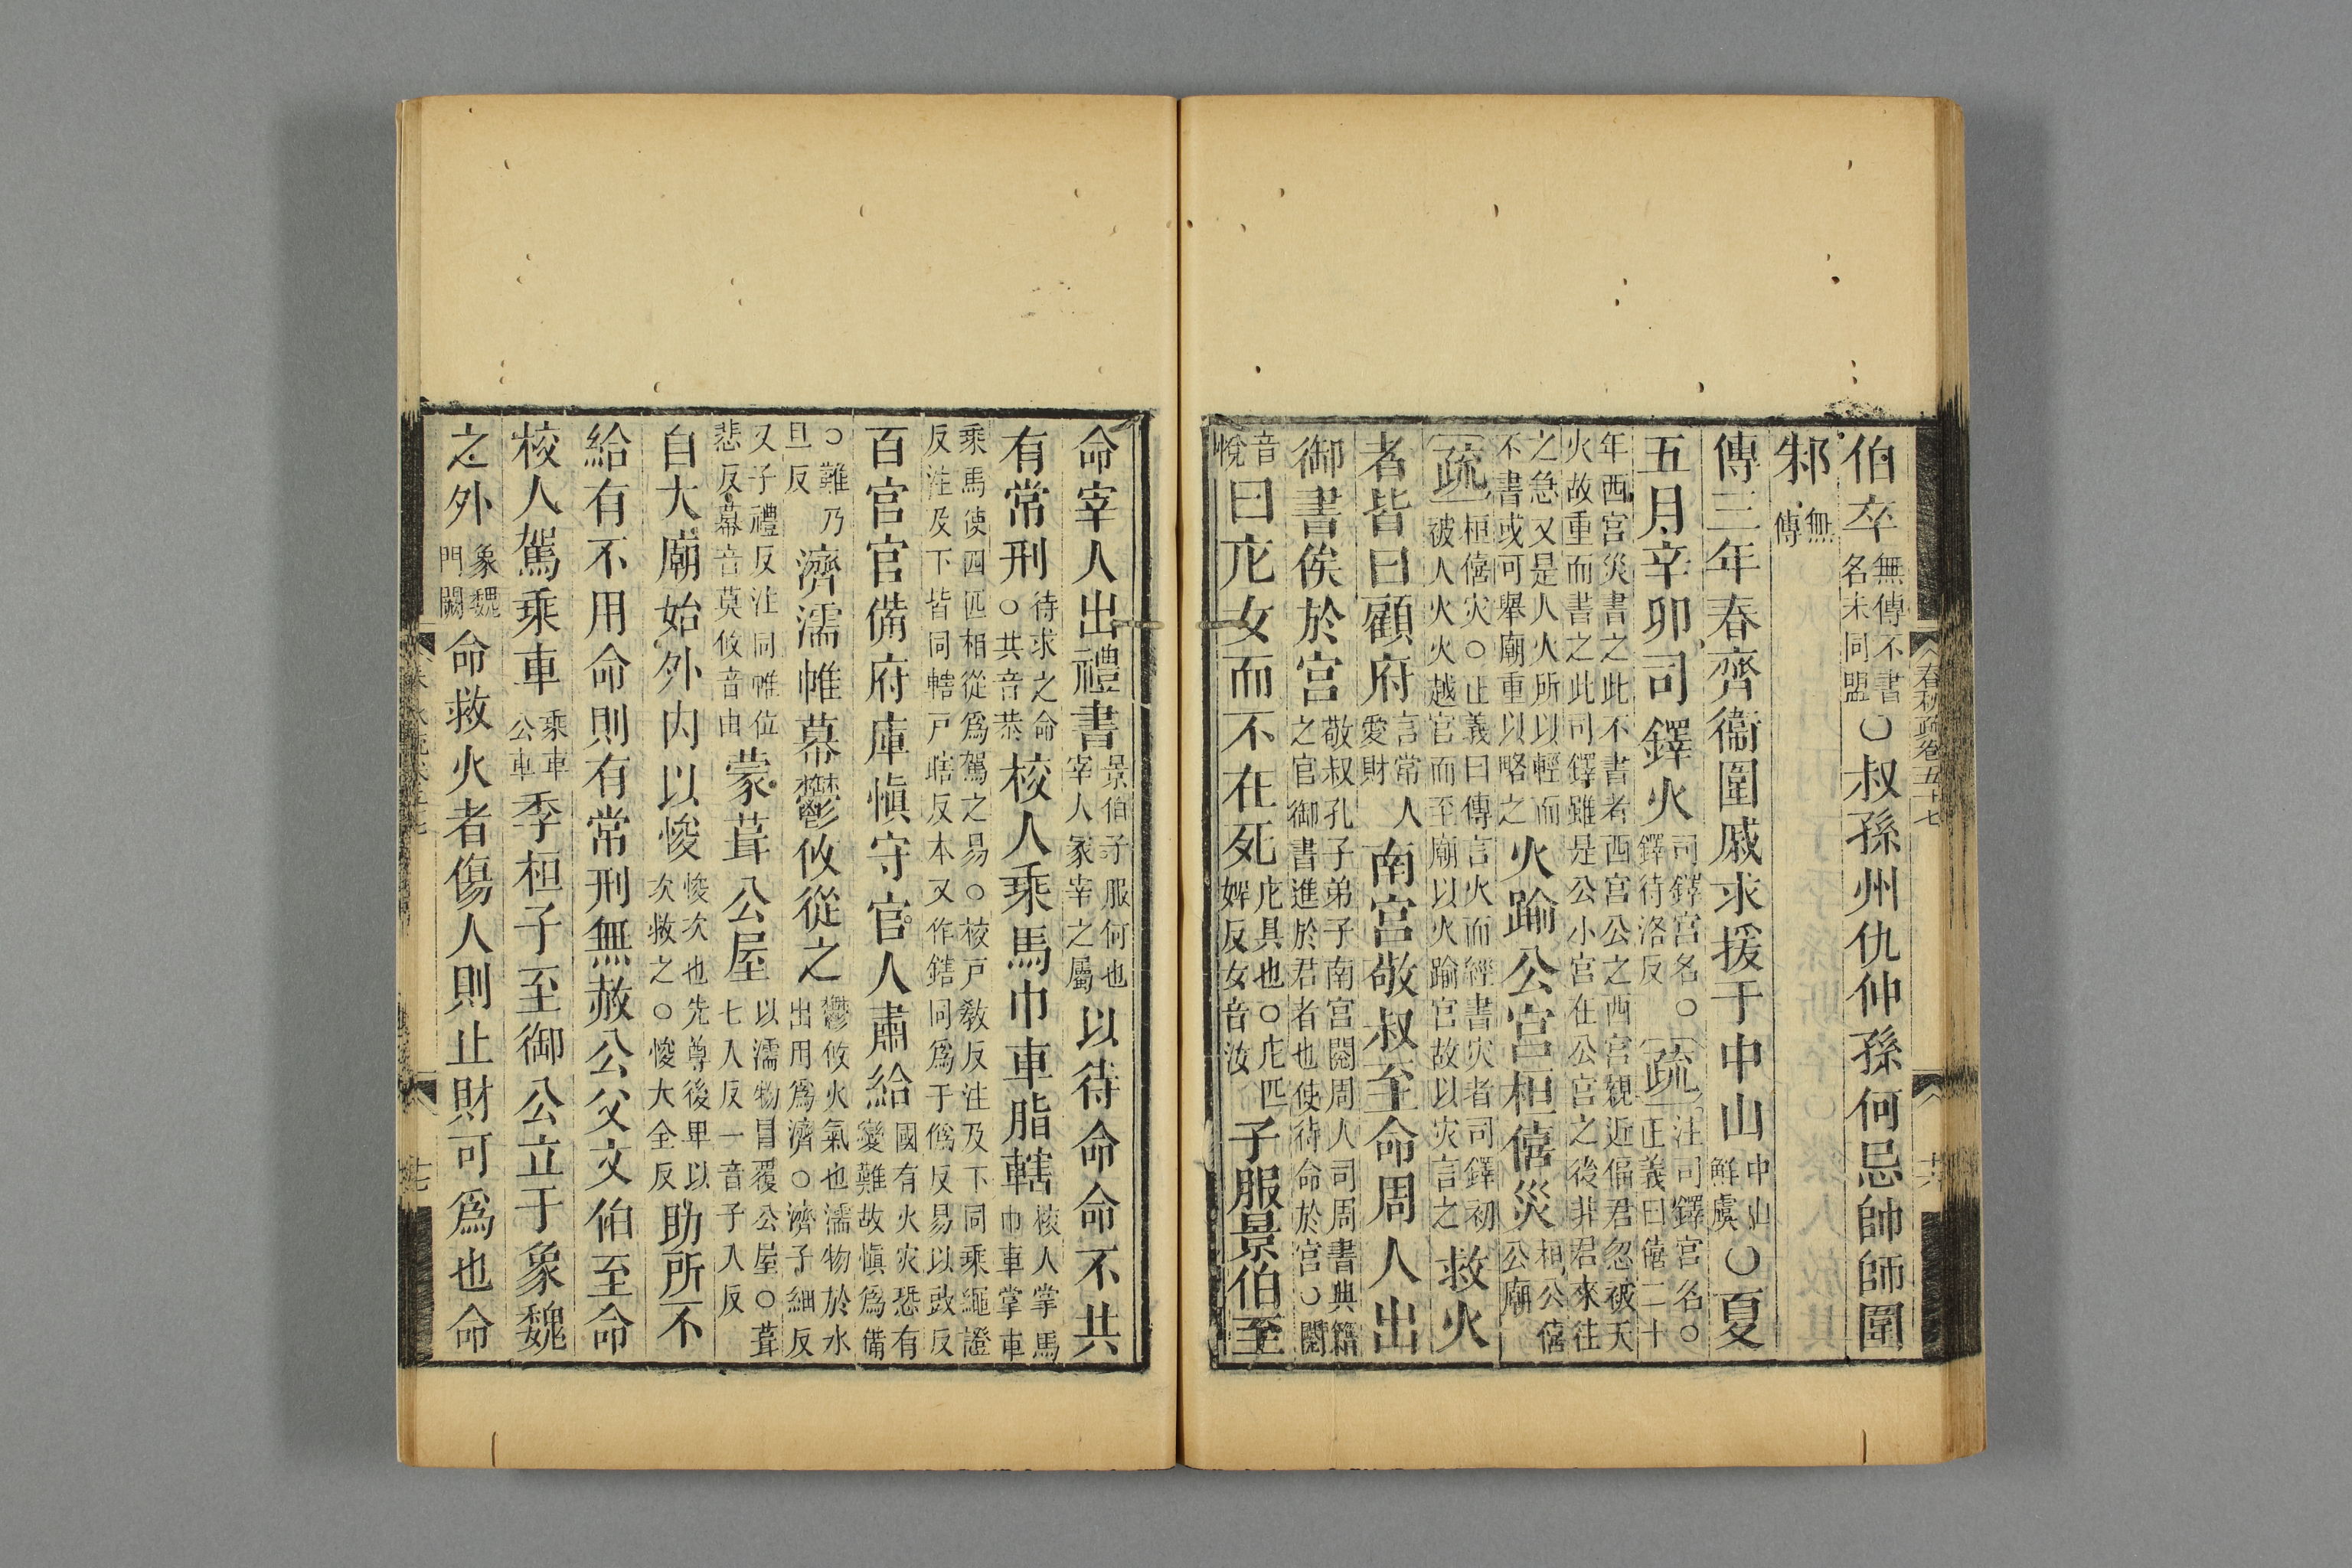 春秋疏卷五十七 十六
伯卒無傳不書名未同盟○叔孫州仇仲孫何忌帥師圍
邾無傳
傳三年春齊衞圍戚求援于中山中山鮮虞○夏
五月辛卯司鐸火司鐸宮名○鐸待洛反疏注司鐸宮名○正義曰僖二十
年西宮災書之此不書者西宮公之西宮親近偪君忽被天火故重而書之此司鐸雖是公小宮在公宮之後非君來往
之急又是人火所以輕而不書或可舉廟重以略之火踰公宮桓僖災桓公僖公廟
疏桓僖灾○正義曰傳言火而經書灾者司鐸初被人火火越官而至廟以火踰宮故以灾言之救火
者皆曰顧府言常人愛財南宮敬叔至命周人出
御書俟於宮敬叔孔子弟子南宮閱周人司周書典籍之官御書進於君者也使待命於宮○閱
音悅曰庀女而不在死庀具也○庀匹婢反女音汝子服景伯至
命宰人出禮書景伯子服何也宰人冢宰之屬以待命命不共
有常刑待求之命○共音恭校人乘馬巾車脂轄校人掌馬巾車掌車
乘馬使四匹相從爲駕之易○校戸敎反注及下同乘繩證反注及下皆同轄戸瞎反本又作鎋同爲于僞反易以豉反
百官官備府庫愼守官人肅給國有火灾恐有變難故愼爲備
○難乃旦反濟濡帷幕鬱攸從之鬱攸火氣也濡物於水出用爲濟○濟子細反
又子禮反注同帷位悲反幕音莫攸音由蒙葺公屋以濡物冒覆公屋○葺七入反一音子入反
自大廟始外内以悛悛次也先尊後卑以次救之○悛大全反助所不
給有不用命則有常刑無赦公父文伯至命
校人駕乘車乘車公車季桓子至御公立于象魏
之外象魏門闕命救火者傷人則止財可爲也命